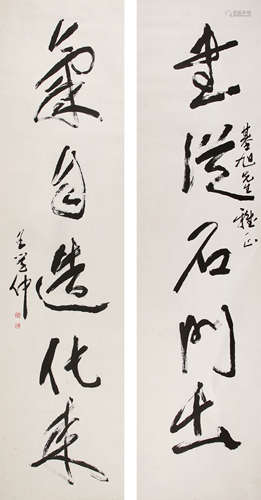 書從石門出
基旭先生雅正
氣自造化來
王學仲